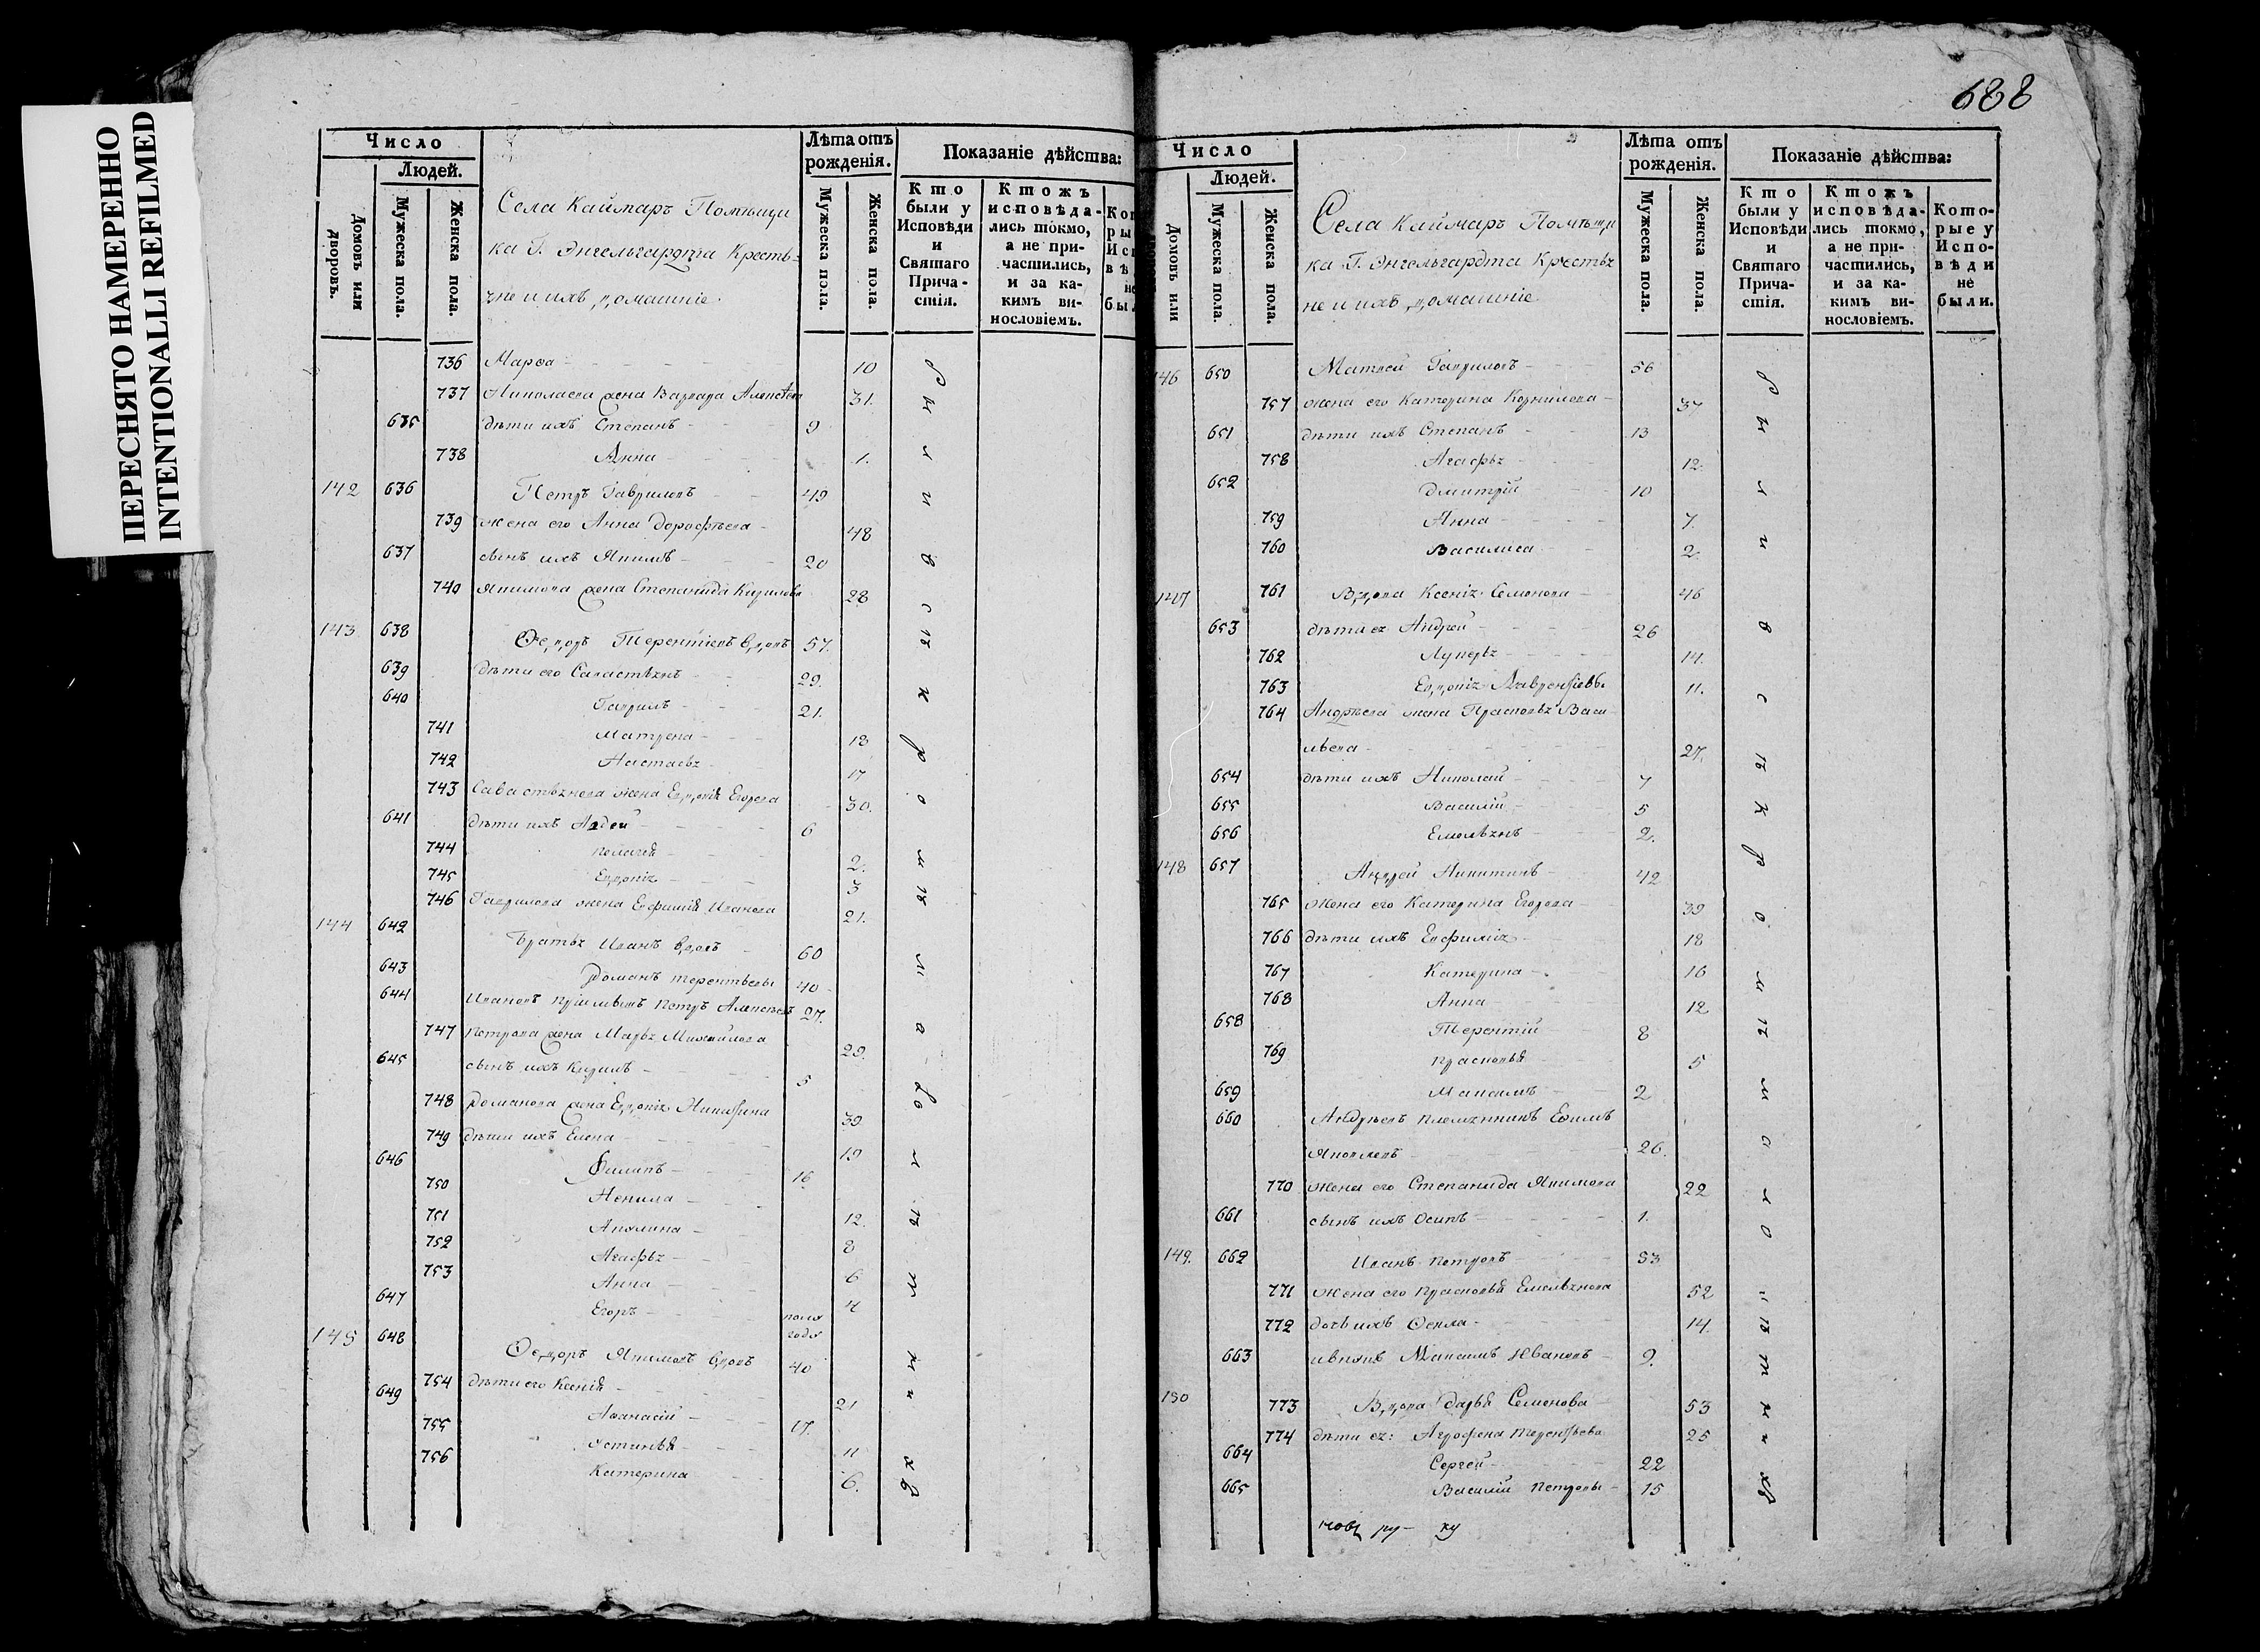 ПЕРЕСНЯТО НАМЕРЕННО
INTENTIONALLI REFILMED
688
Число
Людей.
Домовъ или дворовъ.
Мужеска пола.
Женска пола.
Села Каймаръ Помѣщи
ка Г. Энгельгардта Кресть-
яне и ихъ домашніе
Лѣта отъ рожденія.
Мужеска пола.
Женска пола.
Показаніе дѣйства:
Кто были у Исповѣди и Святаго Причастія.
Ктожъ исповѣдались токмо, а не причастились, и за какимъ винословіемъ.
736 Марѳа 10
737 Николаева жена Варвара Алексѣева 31.
635 дѣти ихъ Степанъ 9
738 Анна 1.
142 636 Петръ Гавриловъ 49
739 жена его Анна Дорофѣева 48
637 сынъ ихъ Якимъ 20
740 Якимова жена Степанида Кирилова 28
143 638 Ѳедоръ Терентіевъ вдовъ 57.
639 дѣти его Савастьянъ 29.
640 Гаврилъ 21.
741 Матрена 18
742 Настасья 17
743 Савастьянова жена Евдокія Егорова 30.
641 дѣти ихъ Авдей 6
744 Пелагія 2.
745 Евдокія 3
746 Гаврилова жена Евфимія Иванова 21.
144 642 Братья Иванъ вдовъ 60
643 Романъ Терентьевы 40
644 Ивановъ пріимышъ Петръ Алексѣевъ 27.
747 Петрова жена Марья Михайлова 29.
645 сынъ ихъ Кирилъ 5
748 Романова жена Евдокія Никитина 39
749 дѣти ихъ Елена 19
646 Филипъ 16
750 Ненила 12.
751 Акулина 8
752 Агафья 6
753 Анна 4
647 Егоръ полъ года
145 648 Ѳедоръ Якимовъ вдовъ 40
754 дѣти его Ксенія 21
649 Аѳанасій 17.
755 Устинья 11
756 Катерина 6.
были в сѣкромѣ малолѣтнихъ
Число
Людей.
Домовъ или
Мужеска пола.
Женска пола.
Села Каймаръ Помѣщи
ка Г. Энгельгардта Крестья
не и ихъ домашніе
Лѣта отъ рожденія.
Мужеска пола.
Женска пола.
Показаніе дѣйства:
Кто были у Исповѣди и Святаго Причастія.
Ктожъ исповѣдались токмо, а не причастились, и за какимъ винословіемъ.
Которые у Исповѣди не были.
146 650 Матвей Гавриловъ 56
757 жена его Катерина Корнилова 37
651 дѣти ихъ Степанъ 13
758 Агафья 12.
652 Дмитрій 10
759 Анна 7.
760 Василиса 2.
147 761 Вдова Ксенія Семенова 46
653 дѣти ея Андрей 26
762 Лукерья 14.
763 Евдокія Лаврентьевы 11.
764 Андрѣева жена Прасковья Васи
льева 27.
654 дѣти ихъ Николай 7
655 Василій 5
656 Емельянъ 2.
148 657 Андрей Никитинъ 42
765 жена его Катерина Егорова 39
766 дѣти ихъ Евфимія 18
767 Катерина 16
768 Анна 12
658 Терентій 8
769 Прасковья 5
659 Максимъ 2
660 Андрѣевъ племянникъ Ефимъ
Яковлевъ 26.
770 жена его Степанида Якимова 22
661 сынъ ихъ Осипъ 1.
149. 662 Иванъ Петровъ 53
771 жена его Прасковья Емельянова 52
772 дочь ихъ Ѳекла 14.
663 внукъ Максимъ Ивановъ 9.
150 773 Вдова Дарья Семенова 53
774 дѣти ея: Агрофена Терентьева 25
664 Сергей 22
665 Василій Петровы 15